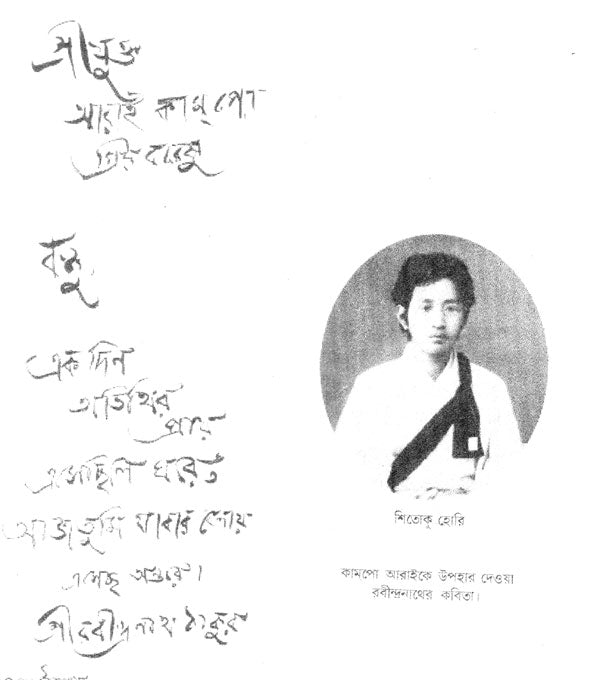 শ্রীযুক্ত
আরাই কাম্‌পো
প্রিয়বরেষু
বন্ধু,
একদিন
অতিথির
প্রায়
এসেছিলে ঘরে
আজ তুমি যাবার বেলায়
এসেছ অন্তরে।
শ্রীরবীন্দ্রনাথ ঠাকুর
শিতোকু হোরি
কামপো আরাইকে উপহার দেওয়া
রবীন্দ্রনাথের কবিতা।